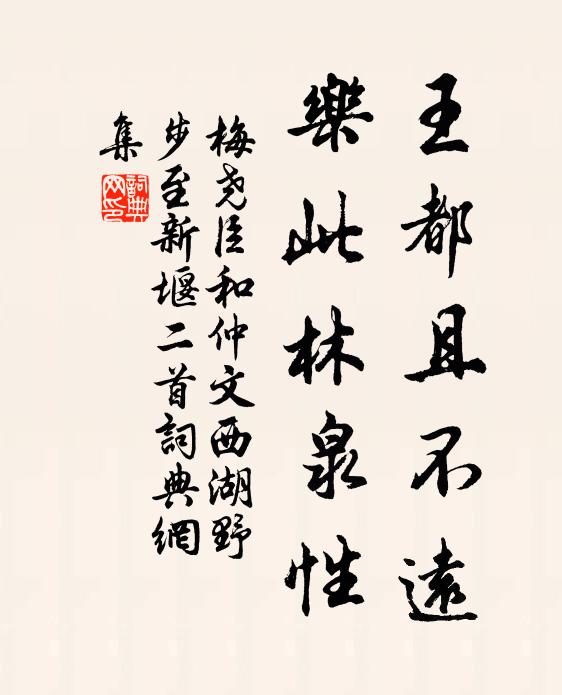 王都且不遠
樂此林泉性
梅堯臣和仲文西湖野
步至新堰二首詞典網
集
詞典
网印